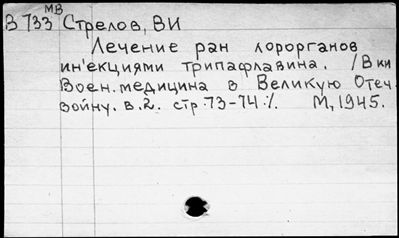 МВ
В 733 Стрелов, ВИ
Лечение ран лорорганов
ин'екциями трипафлавина. /В кн
Воен. медицина в Великую Отеч.
войну. в.2. стр.73-74./. М, 1945.